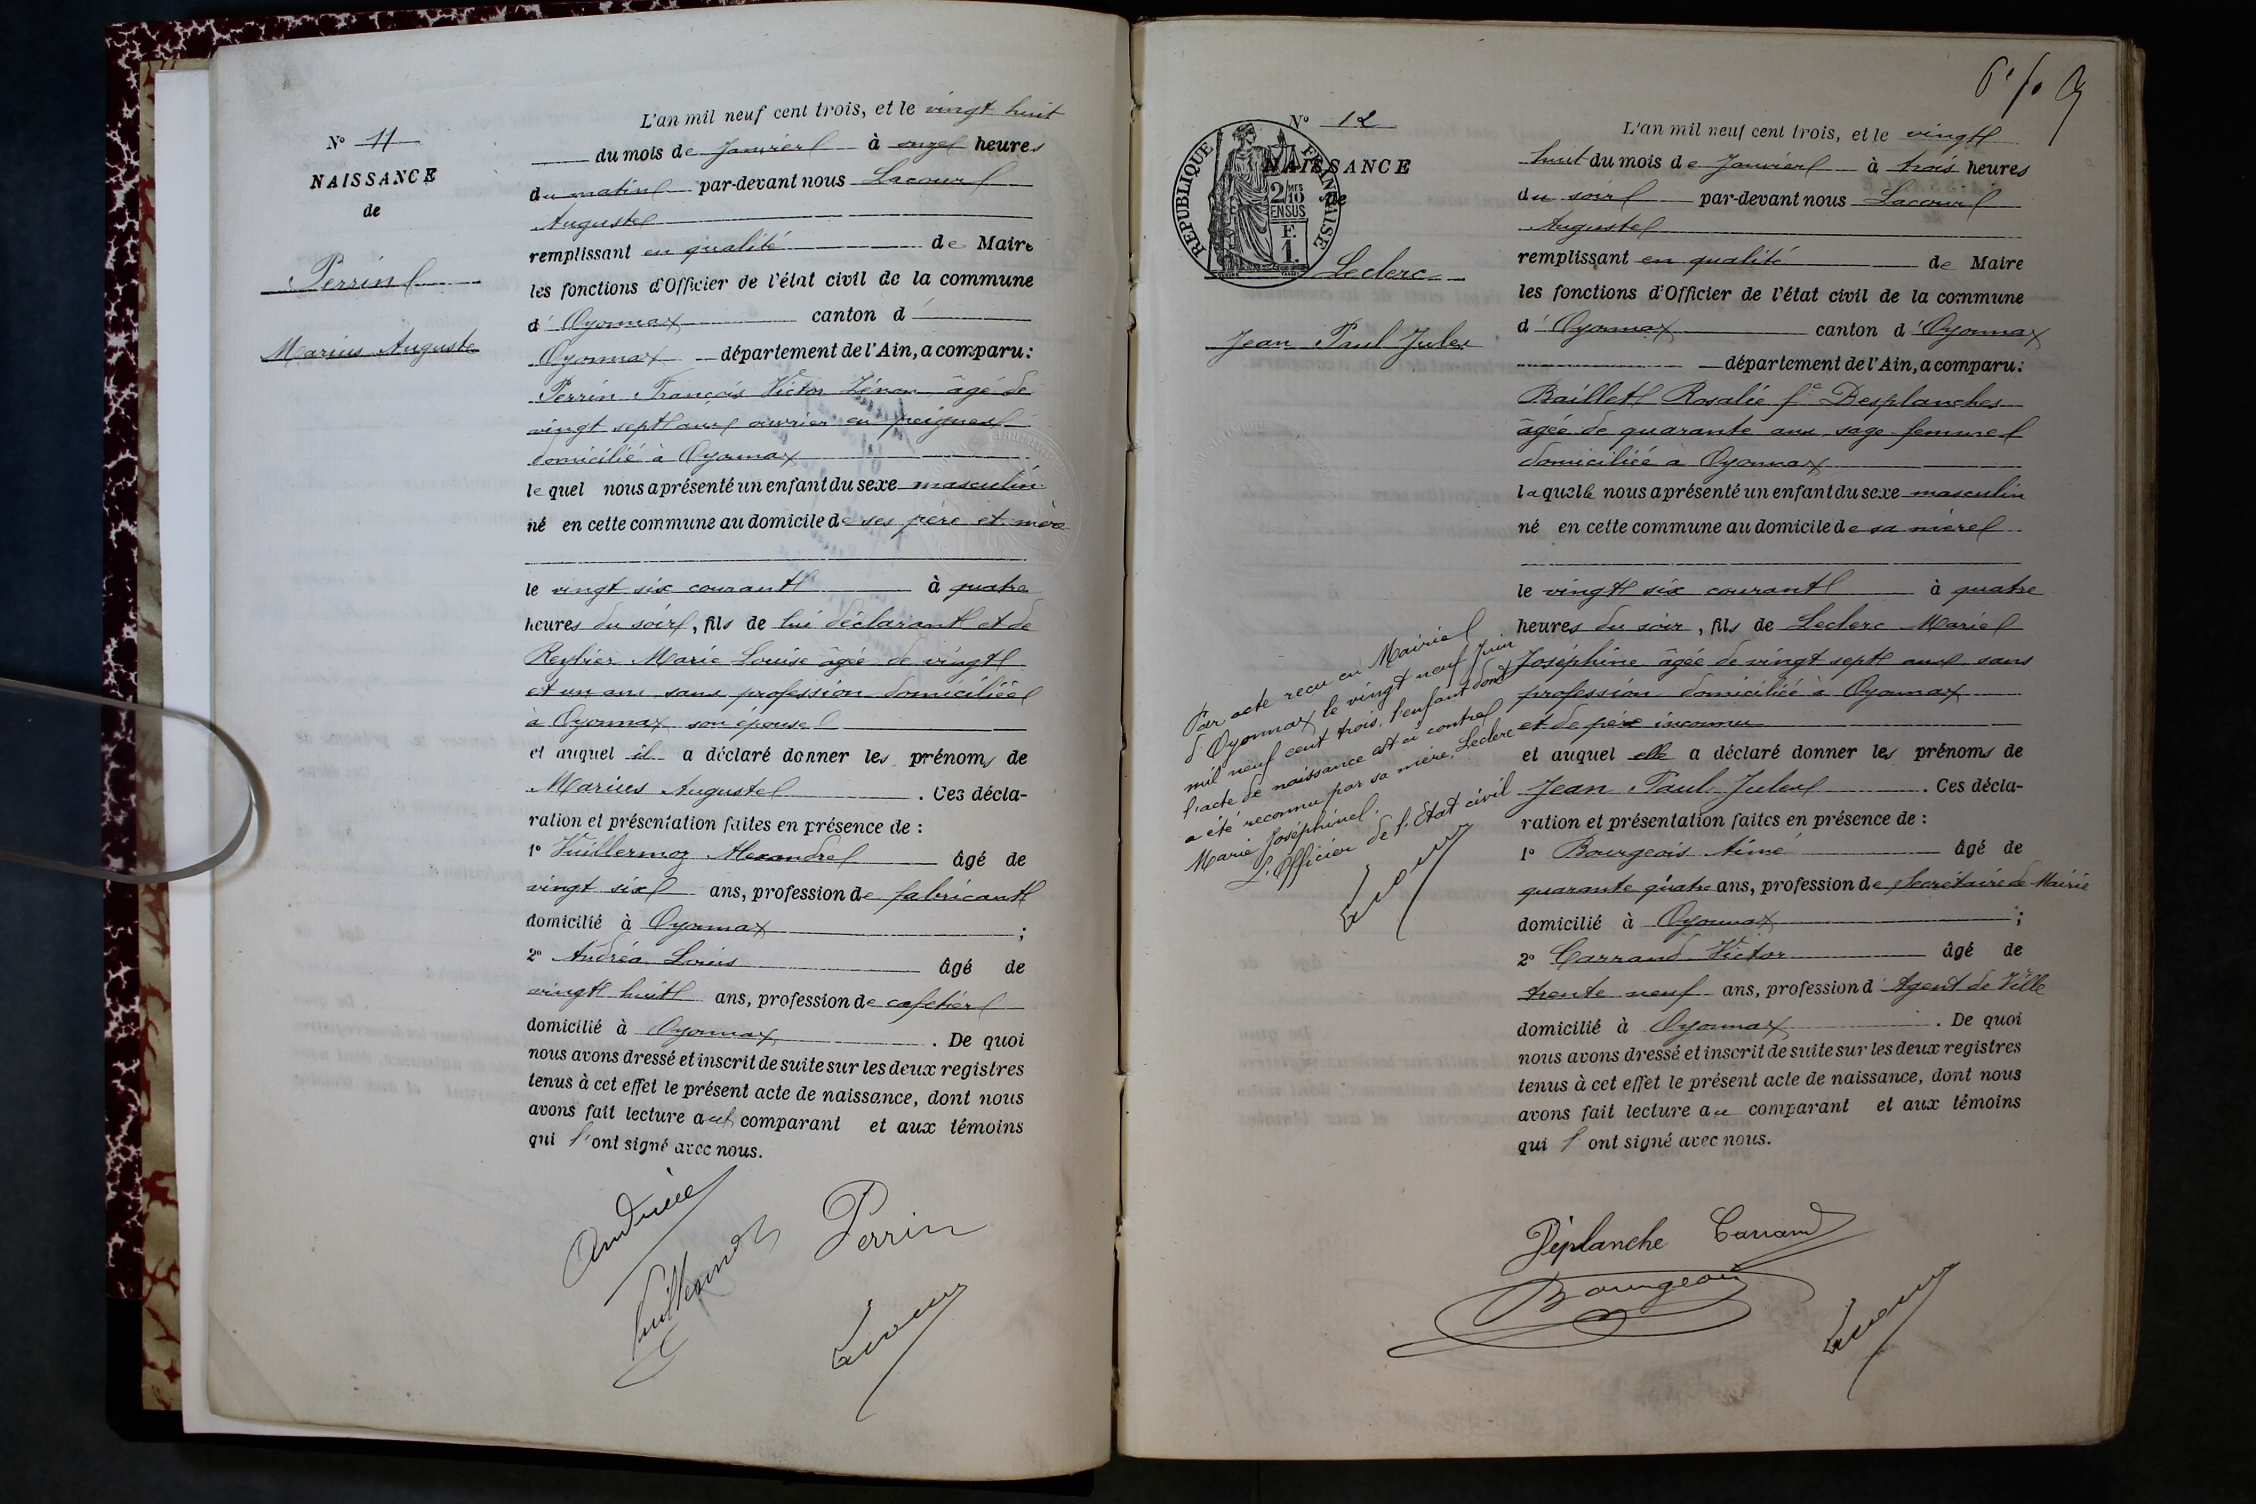 N° 11
NAISSANCE
de
Perrin
Marius Auguste
L'an mil neuf cent trois, et le vingt huit
du mois de Janvier à onze heures
du matin par-devant nous Lacour
Auguste
remplissant en qualité de Maire
les fonctions d'Officier de l'état civil de la commune
d' Oyonnax canton d'
Oyonnax département de l'Ain, a comparu :
Perrin François Victor Zénon âgé de
vingt sept ans ouvrier en peignes
domicilié à Oyonnax
lequel nous a présenté un enfant du sexe masculin
né en cette commune au domicile de ses père et mère
le vingt six courant à quatre
heures du soir, fils de lui déclarant et de
Reybier Marie Louise âgée de vingt
et un ans sans profession domiciliée
à Oyonnax son épouse
et auquel il a déclaré donner les prénoms de
Marius Auguste . Ces décla-
ration et présentation faites en présence de :
1° Vuillermoz Alexandre âgé de
vingt six ans, profession de fabricant
domicilié à Oyonnax ;
2° Andréa Louis âgé de
vingt huit ans, profession de cafetier
domicilié à Oyonnax . De quoi
nous avons dressé et inscrit de suite sur les deux registres
tenus à cet effet le présent acte de naissance, dont nous
avons fait lecture au comparant et aux témoins
qui l'ont signé avec nous.
Perrin
Vuillermoz
Lacour
N° 12
NAISSANCE
de
REPUBLIQUE FRANÇAISE
2/10 EN SUS
F.
1.
Leclerc
Jean Paul Jules
L'an mil neuf cent trois, et le vingt
huit du mois de Janvier à trois heures
du soir par-devant nous Lacour
Auguste
remplissant en qualité de Maire
les fonctions d'Officier de l'état civil de la commune
d' Oyonnax canton d' Oyonnax
département de l'Ain, a comparu :
Baillet Rosalie fe Desplanches
âgée de quarante ans sage femme
domiciliée à Oyonnax
laquelle nous a présenté un enfant du sexe masculin
né en cette commune au domicile de sa mère
le vingt six courant à quatre
heures du soir, fils de Leclerc Marie
Joséphine âgée de vingt sept ans sans
profession domiciliée à Oyonnax
et de père inconnu
et auquel elle a déclaré donner les prénoms de
Jean Paul Jules . Ces décla-
ration et présentation faites en présence de :
1° Bourgeois Aimé âgé de
quarante quatre ans, profession de Secrétaire de Mairie
domicilié à Oyonnax ;
2° Carrand Victor âgé de
trente neuf ans, profession d' Agent de Ville
domicilié à Oyonnax . De quoi
nous avons dressé et inscrit de suite sur les deux registres
tenus à cet effet le présent acte de naissance, dont nous
avons fait lecture au comparant et aux témoins
qui l'ont signé avec nous.
Par acte reçu en Mairie
d'Oyonnax le vingt neuf Juin
mil neuf cent trois, l'enfant dont
l'acte de naissance est ci contre
a été reconnu par sa mère, Leclerc
Marie Joséphine.
L'Officier de l'Etat civil
Lacour
Déplanche Carrand
Bourgeois
Lacour